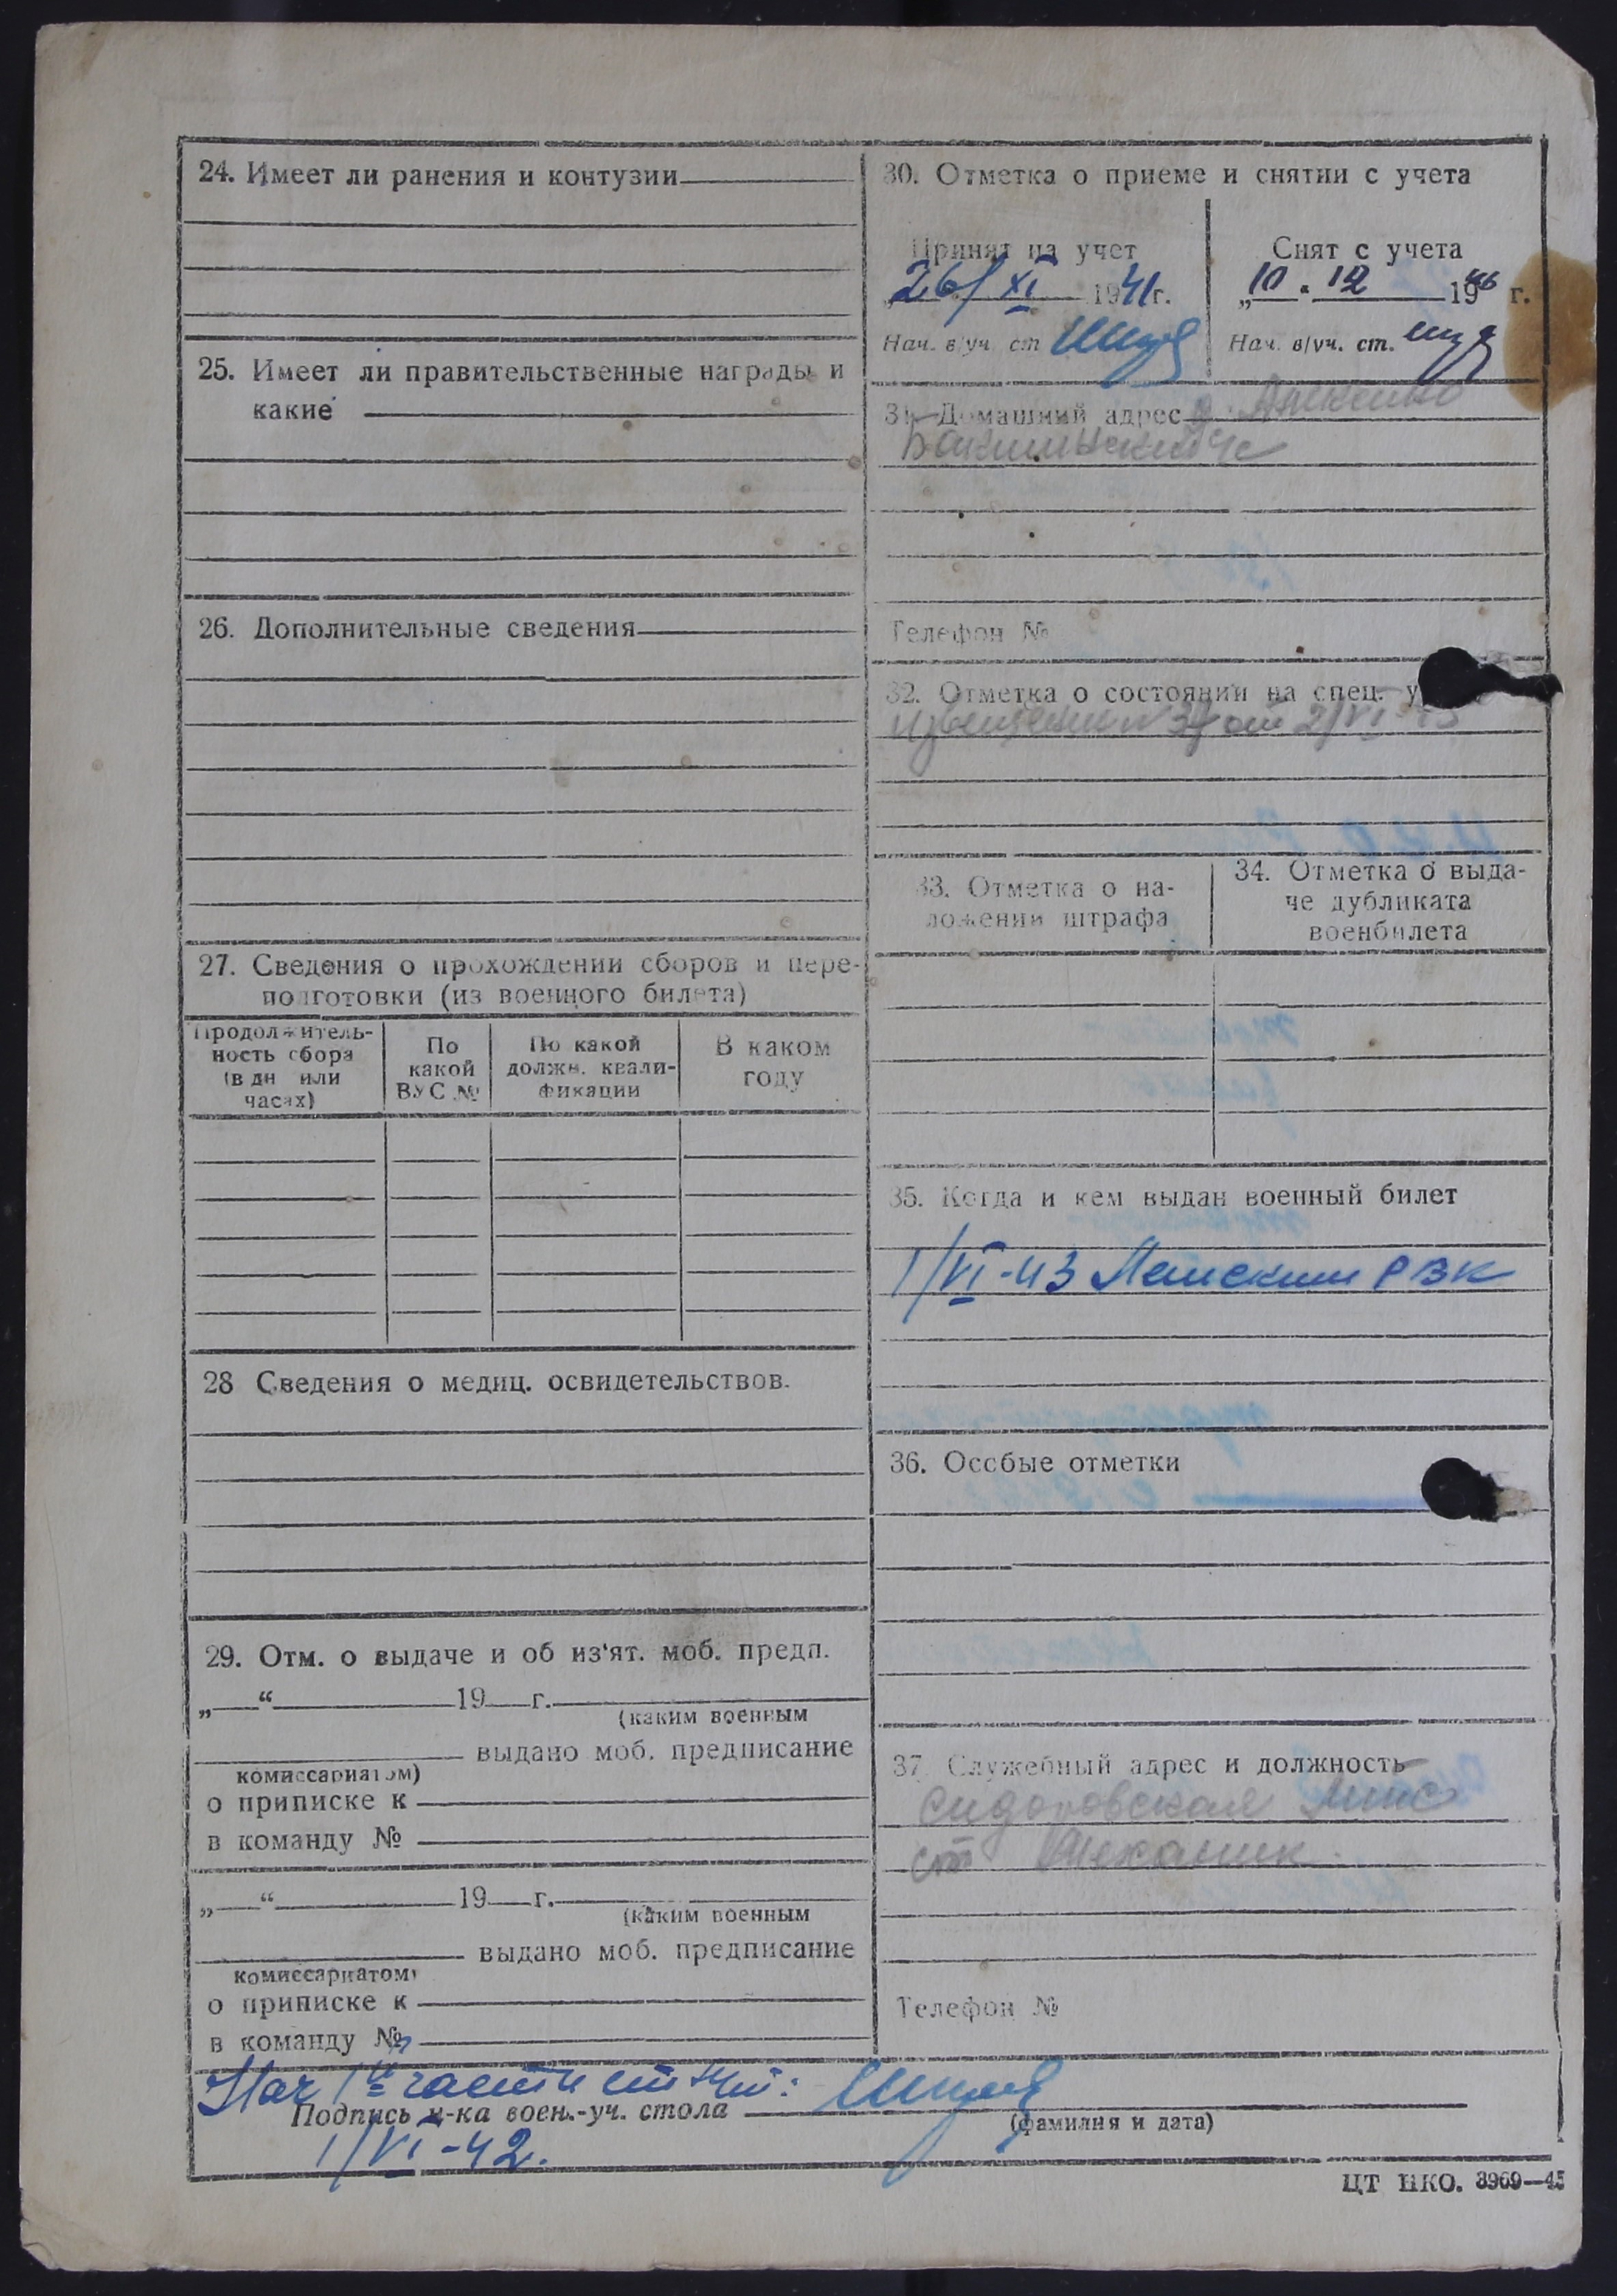 24. Имеет ли ранения и контузии
25. Имеет ли правительственные награды и
какие
26. Дополнительные сведения
27. Сведения о прохождении сборов и пере-
подготовки (из военного билета)
Продолжитель-
ность сбора
(в дн или
часах)
По
какой
ВУС №
По какой
должн. квали-
фикации
В каком
году
28 Сведения о медиц. освидетельствов.
29. Отм. о выдаче и об из'ят. моб. предп.
„—“ 19 г.
(каким военным
выдано моб. предписание
комиссариатом)
о приписке к
в команду №
„—“ 19 г.
(каким военным
выдано моб. предписание
комиссариатом)
о приписке к
в команду №
30. Отметка о приеме и снятии с учета
Принят на учет
26/XI 1941г.
Нач. в/уч. ст
Снят с учета
„10. 12 1946 г.
Нач. в/уч. ст.
31. Домашний адрес
Телефон №
32. Отметка о состоянии на спец. у
от 2/VI-43
33. Отметка о на-
ложении штрафа
34. Отметка о выда-
че дубликата
военбилета
35. Когда и кем выдан военный билет
1/VI-43 РВК
36. Особые отметки
37. Служебный адрес и должность
Сидоровская
ст механик.
Телефон №
Нач 1й части
Подпись н-ка воен.-уч. стола
(фамилия и дата)
1/VI-42.
ЦТ НКО. 3969—45